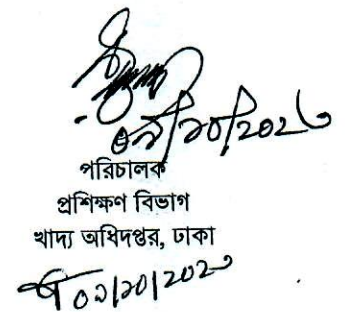 ০৯/১০/২০২৩
পরিচালক
প্রশিক্ষণ বিভাগ
খাদ্য অধিদপ্তর, ঢাকা
০৯/১০/২০২৩